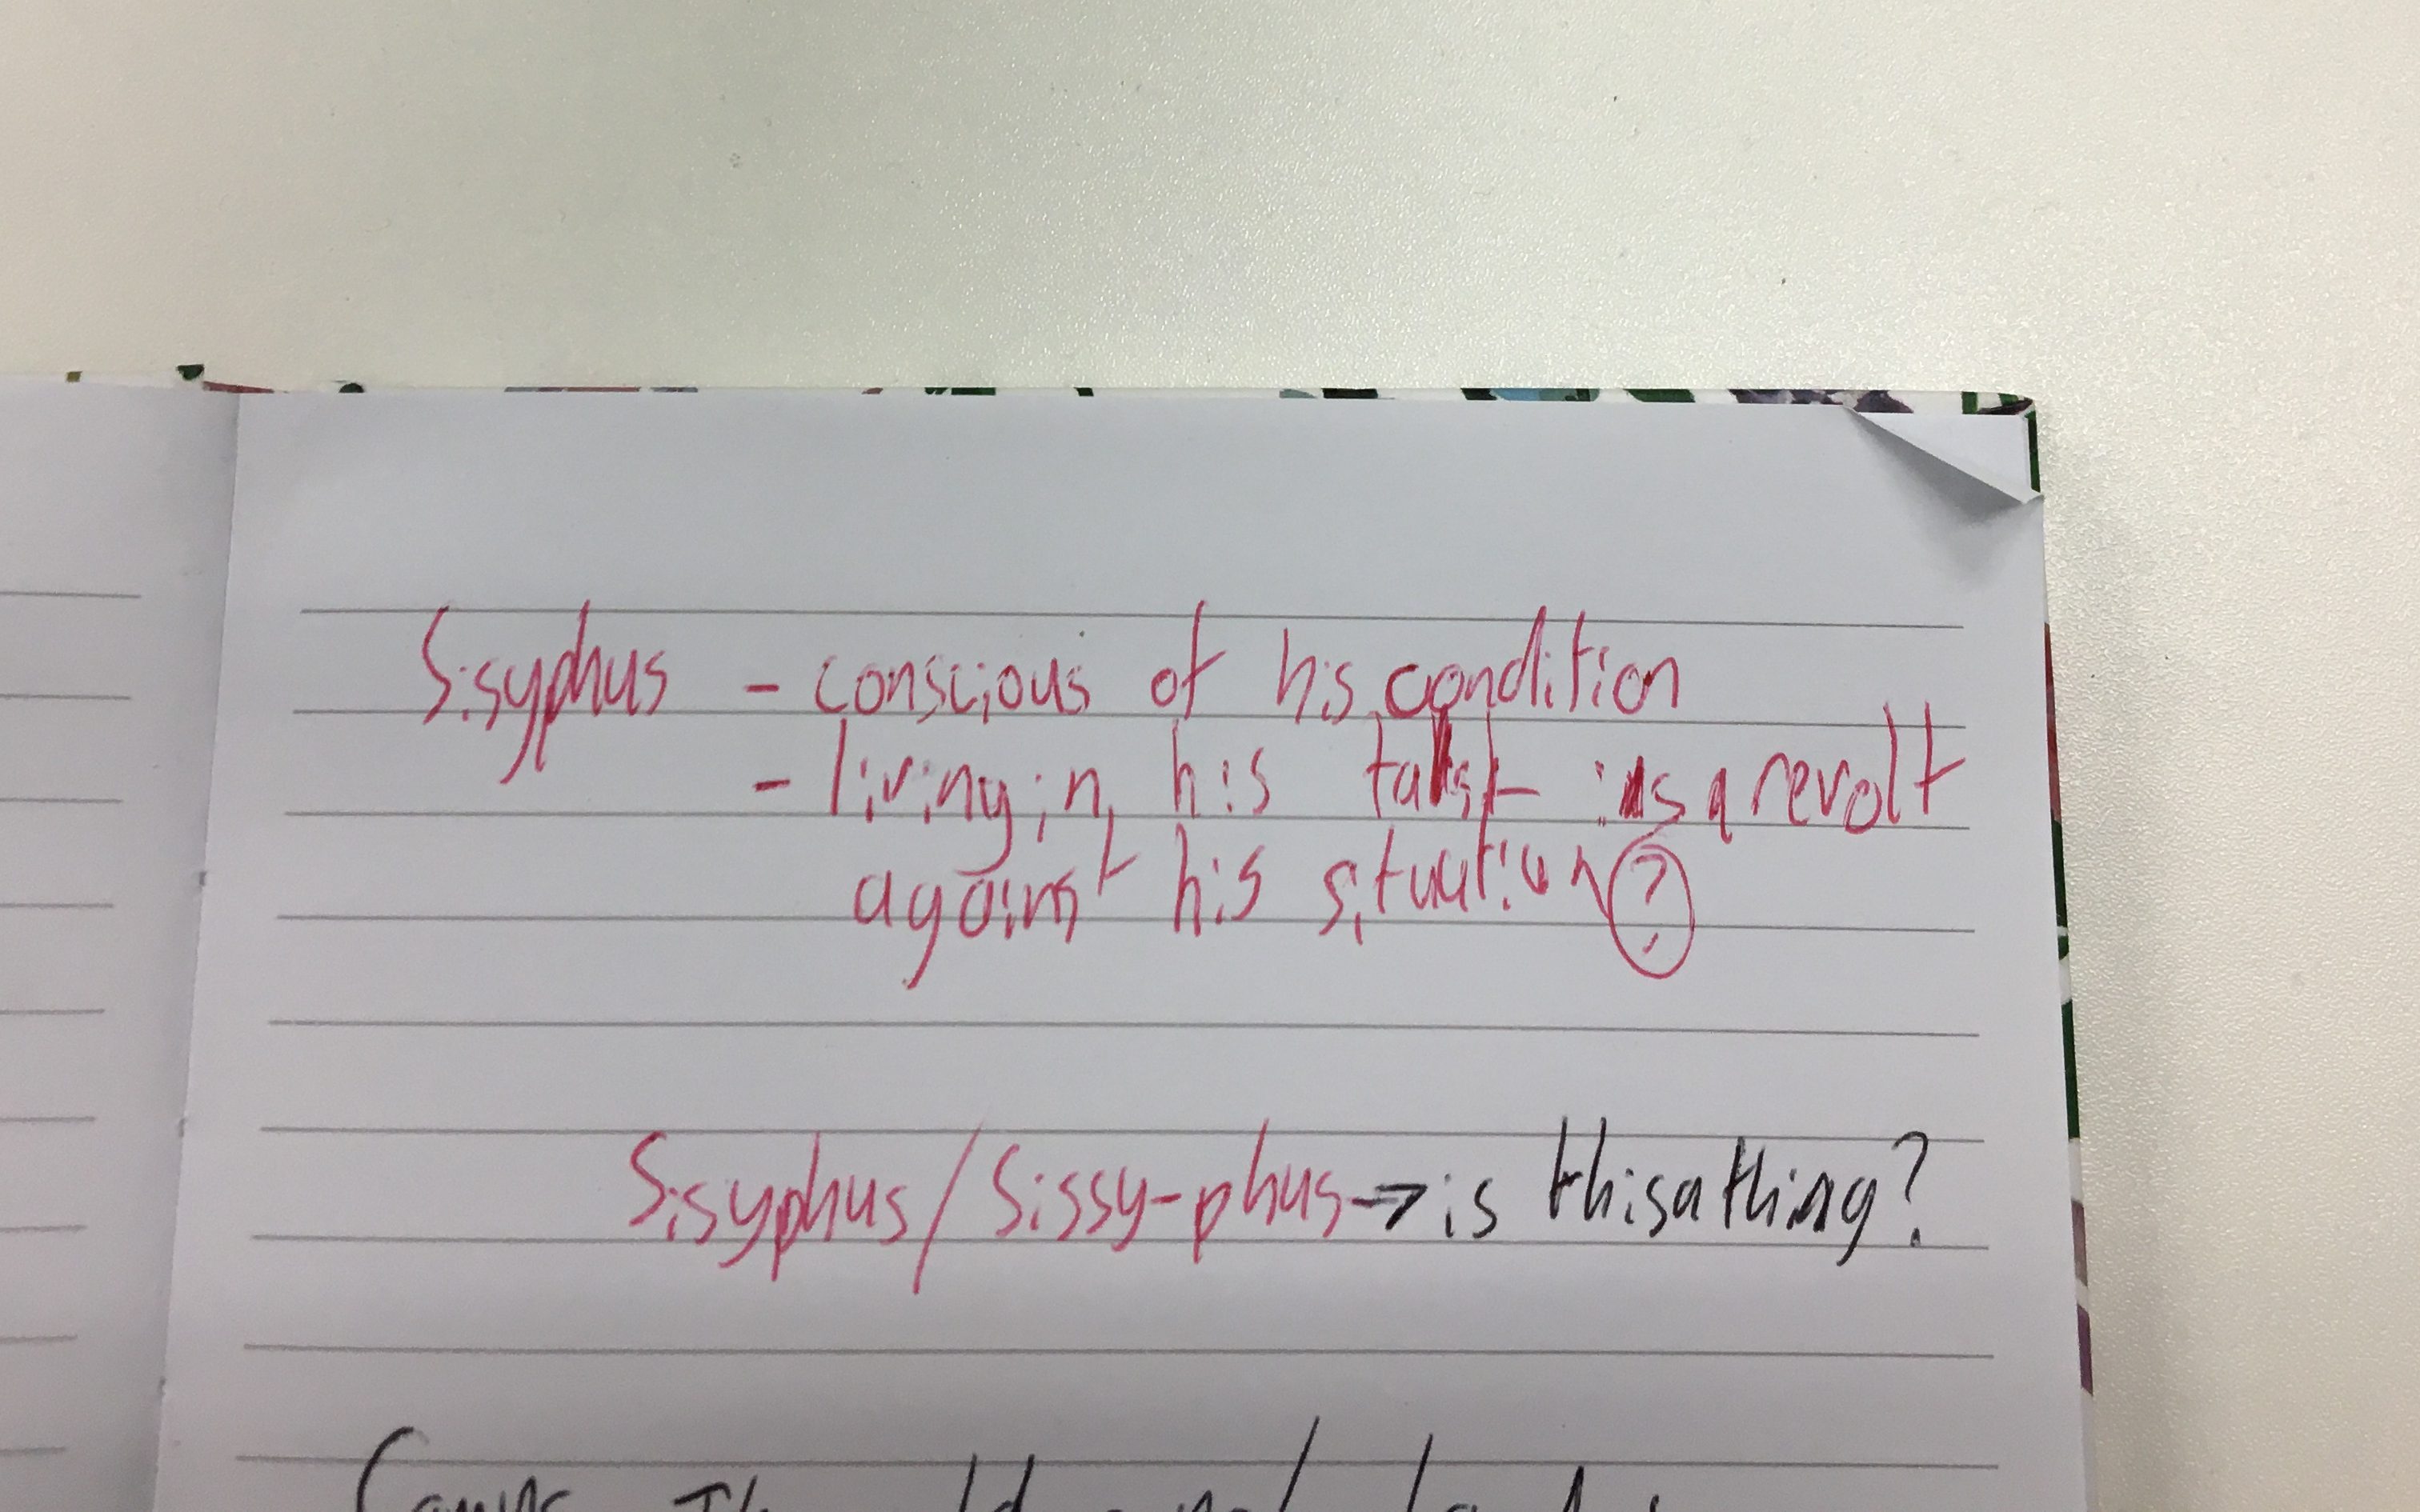 Sisyphus - conscious of his condition
- living in his task is a revolt
against his situation?
Sisyphus/Sissy-phus→is this a thing?
Camus